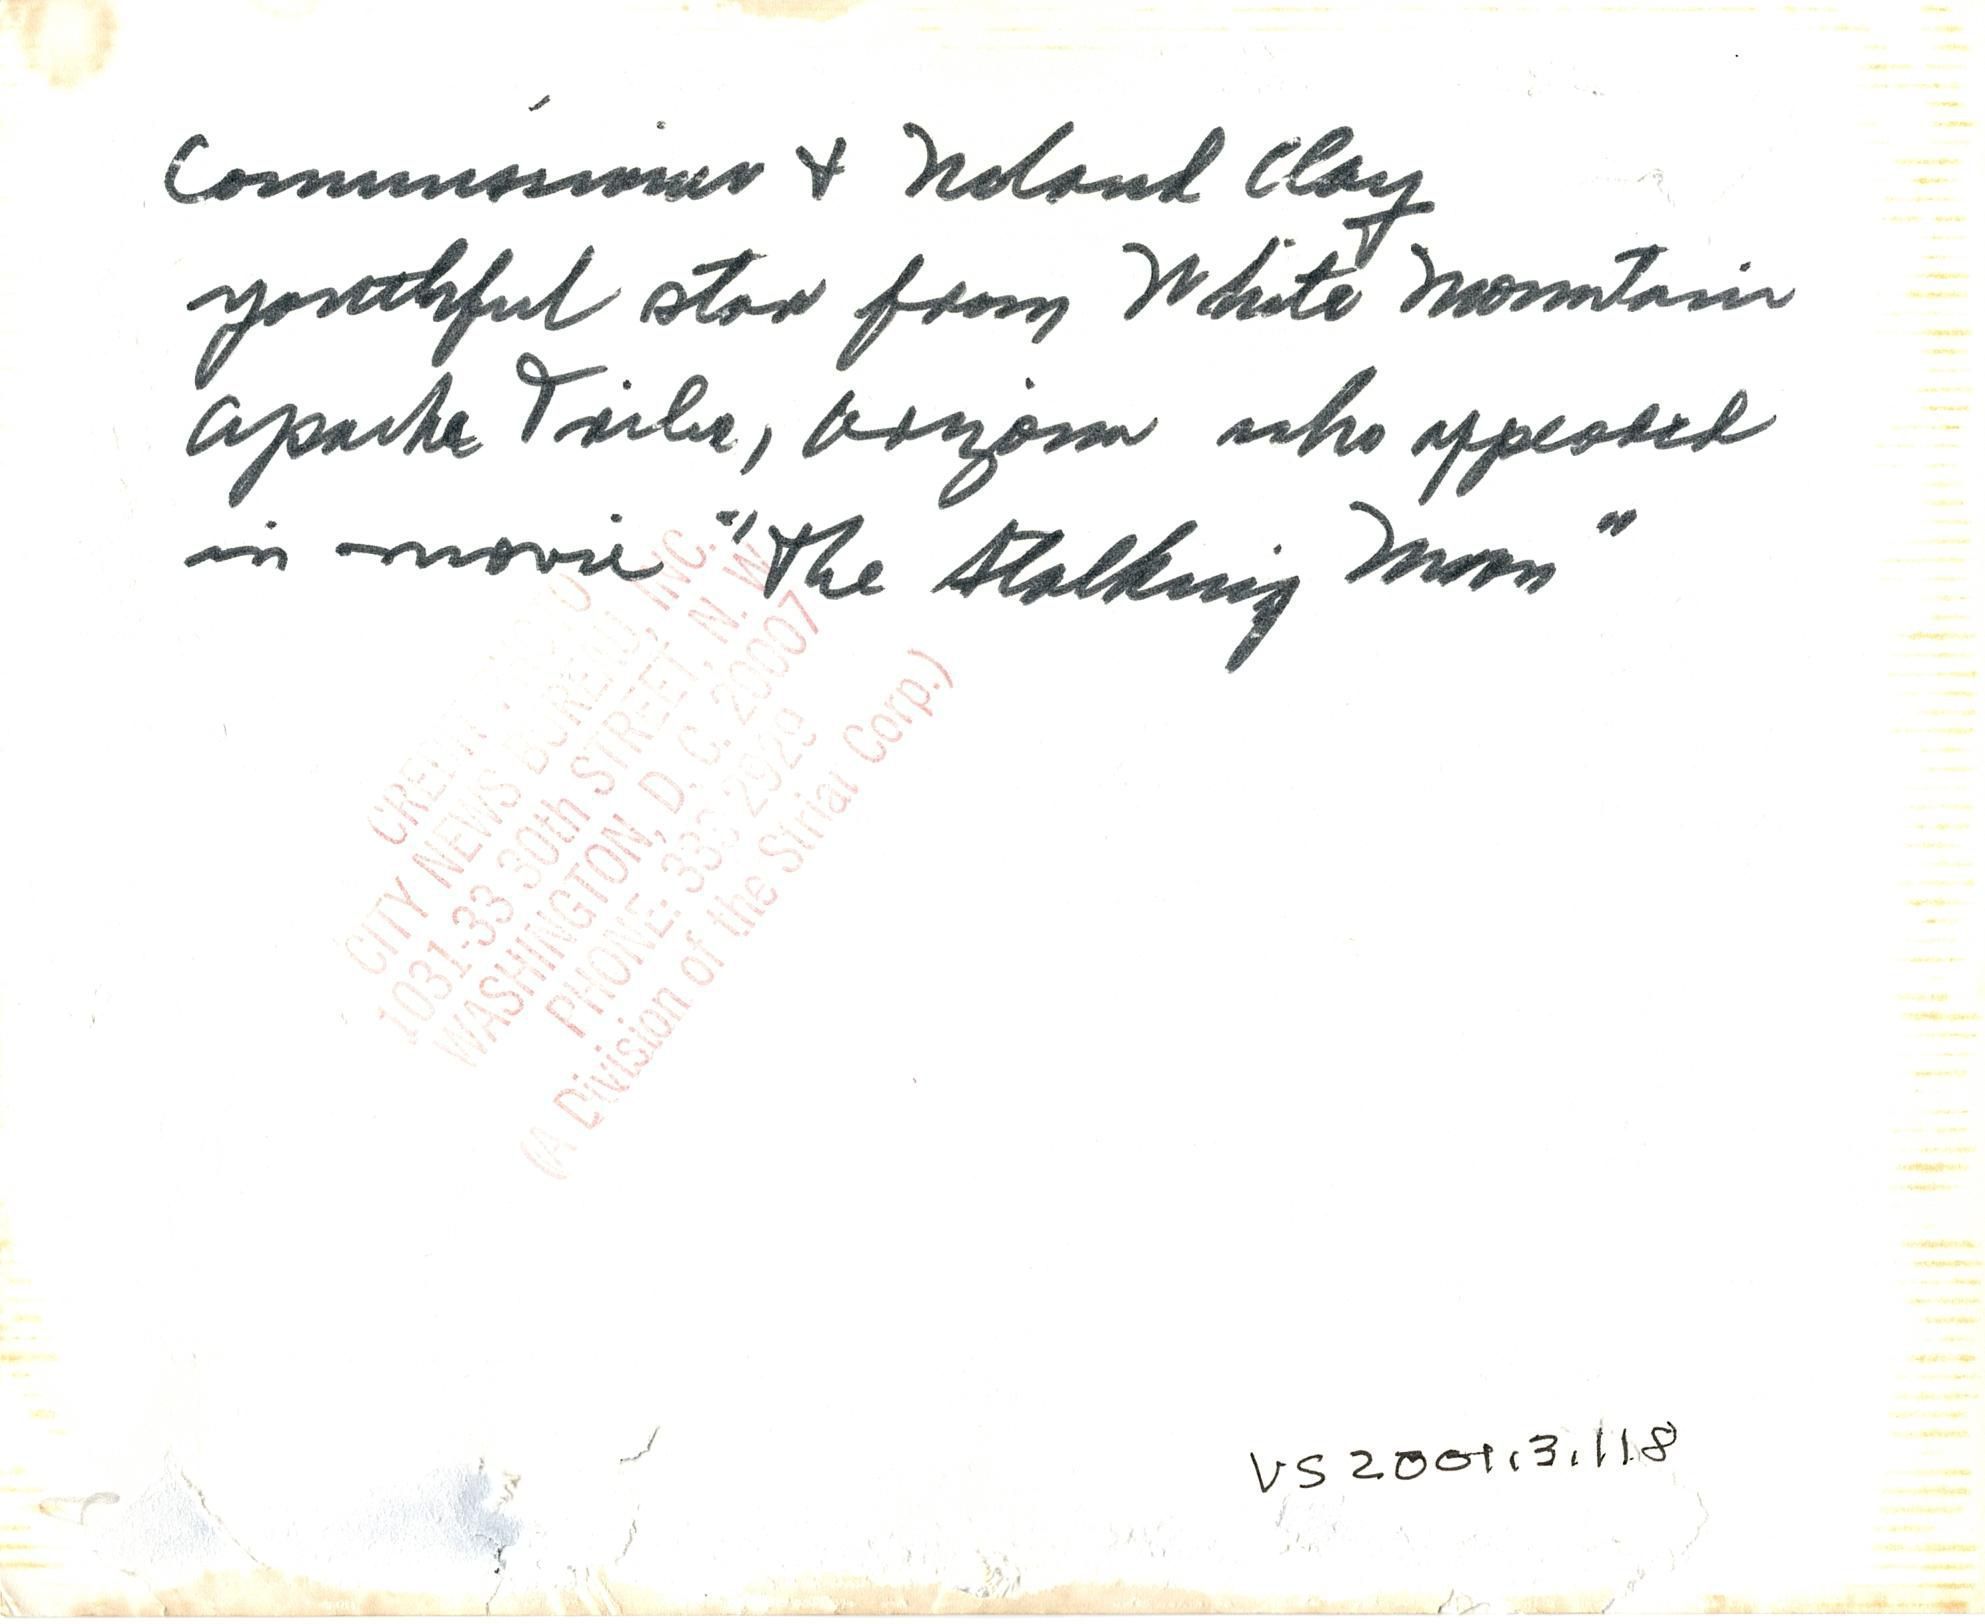 Commissioner & Noland Clay
youthful star from White Mountain
Apache Tribe, Arizona who appeared
in movie "The Stalking Moon"
CITY NEWS BUREAU, INC.
1031-33 30th STREET, N. W.
WASHINGTON, D. C. 20007
PHONE: 333-2929
(A Division of the Strial Corp.)
VS 2001.3.118